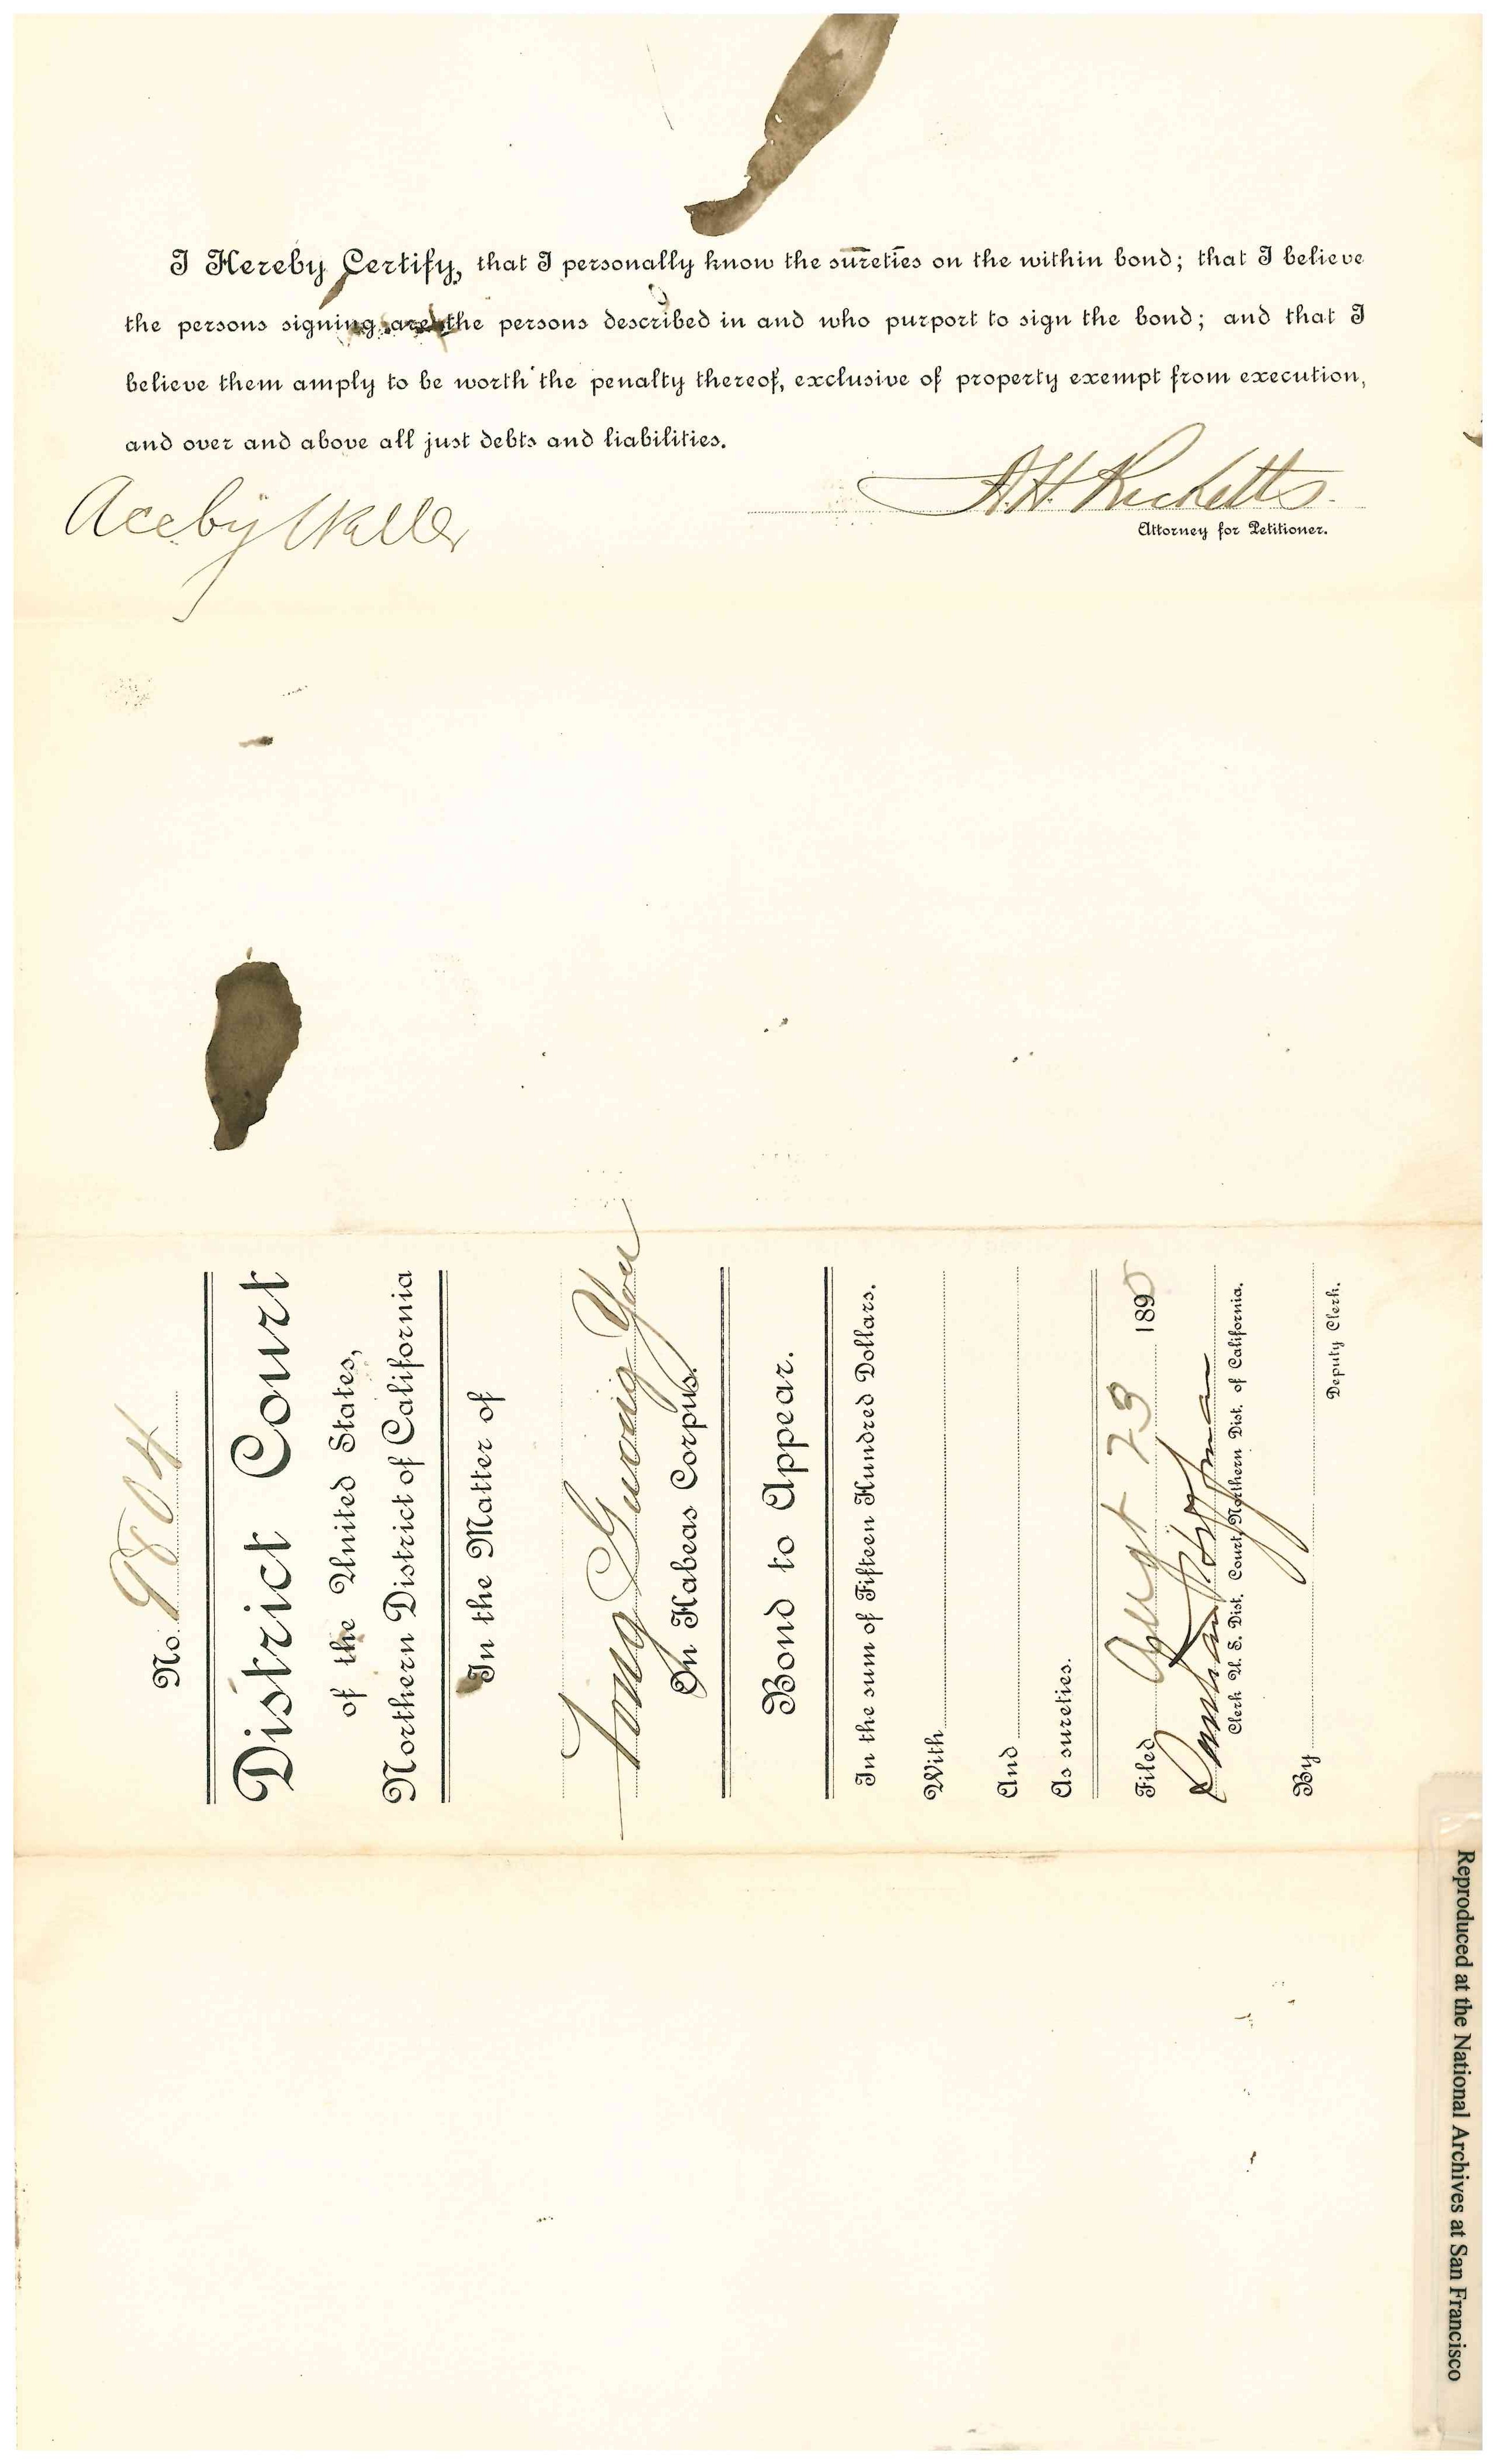 I Hereby Certify, that I personally know the sureties on the within bond; that I believe
the persons signing are the persons described in and who purport to sign the bond; and that I
believe them amply to be worth the penalty thereof, exclusive of property exempt from execution,
and over and above all just debts and liabilities.
A. H. Ricketts.
Attorney for Petitioner.
No. 9804
District Court
of the United States,
Northern District of California
In the Matter of
Fong Gwong You
On Habeas Corpus.
Bond to Appear.
In the sum of Fifteen Hundred Dollars.
With
And
As sureties.
Filed Augt 23 1890
Southard Hoffman
Clerk U. S. Dist. Court, Northern Dist. of California.
By
Deputy Clerk.
Reproduced at the National Archives at San Francisco